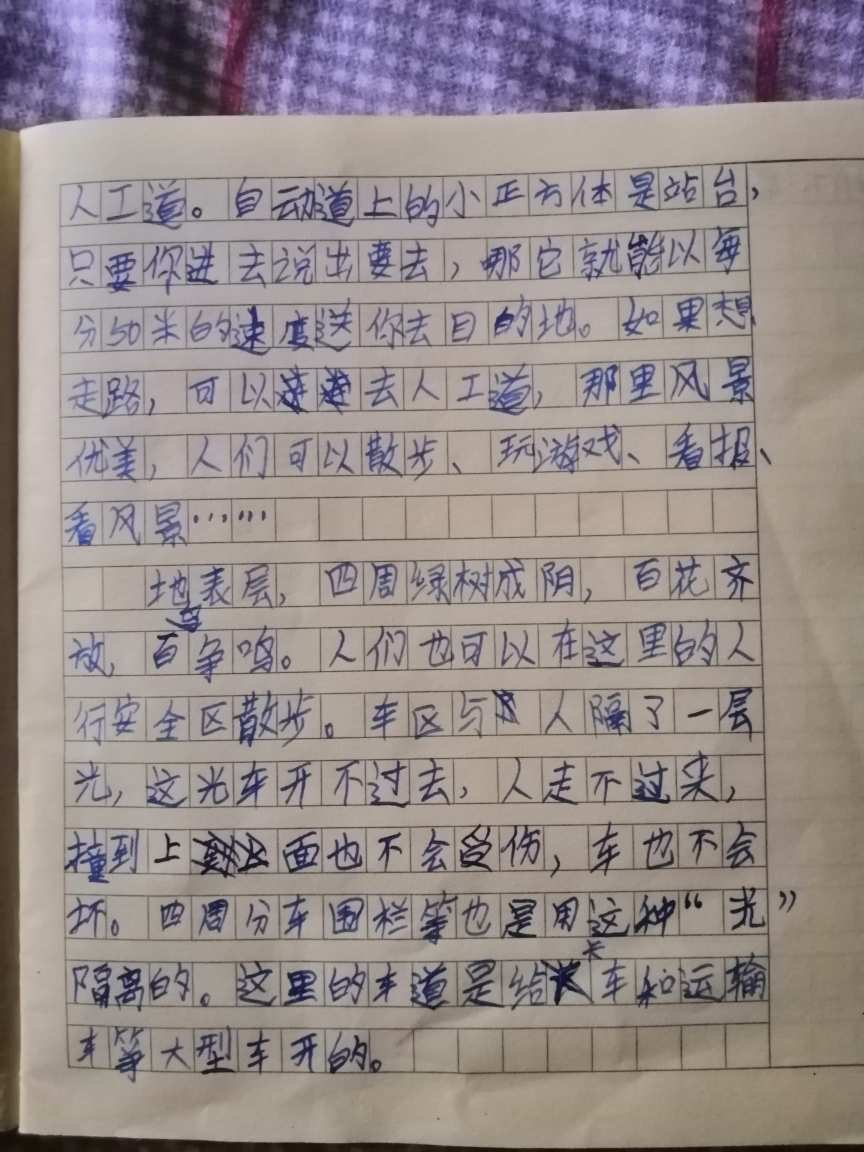 人工道。自动道上的小正方体是站台，
只要你进去说出要去，那它就能以每
分50米的速度送你去目的地。如果想
走路，可以去人工道，那里风景
优美，人们可以散步、玩游戏、看报、
看风景……
地表层，四周绿树成阴，百花齐
放，百鸟争鸣。人们也可以在这里的人
行安全区散步。车区与人隔了一层
光，这光车开不过去，人走不过来，
撞到上面也不会受伤，车也不会
坏。四周分车围栏等也是用这种“光”
隔离的。这里的车道是给大车和运输
车等大型车开的。